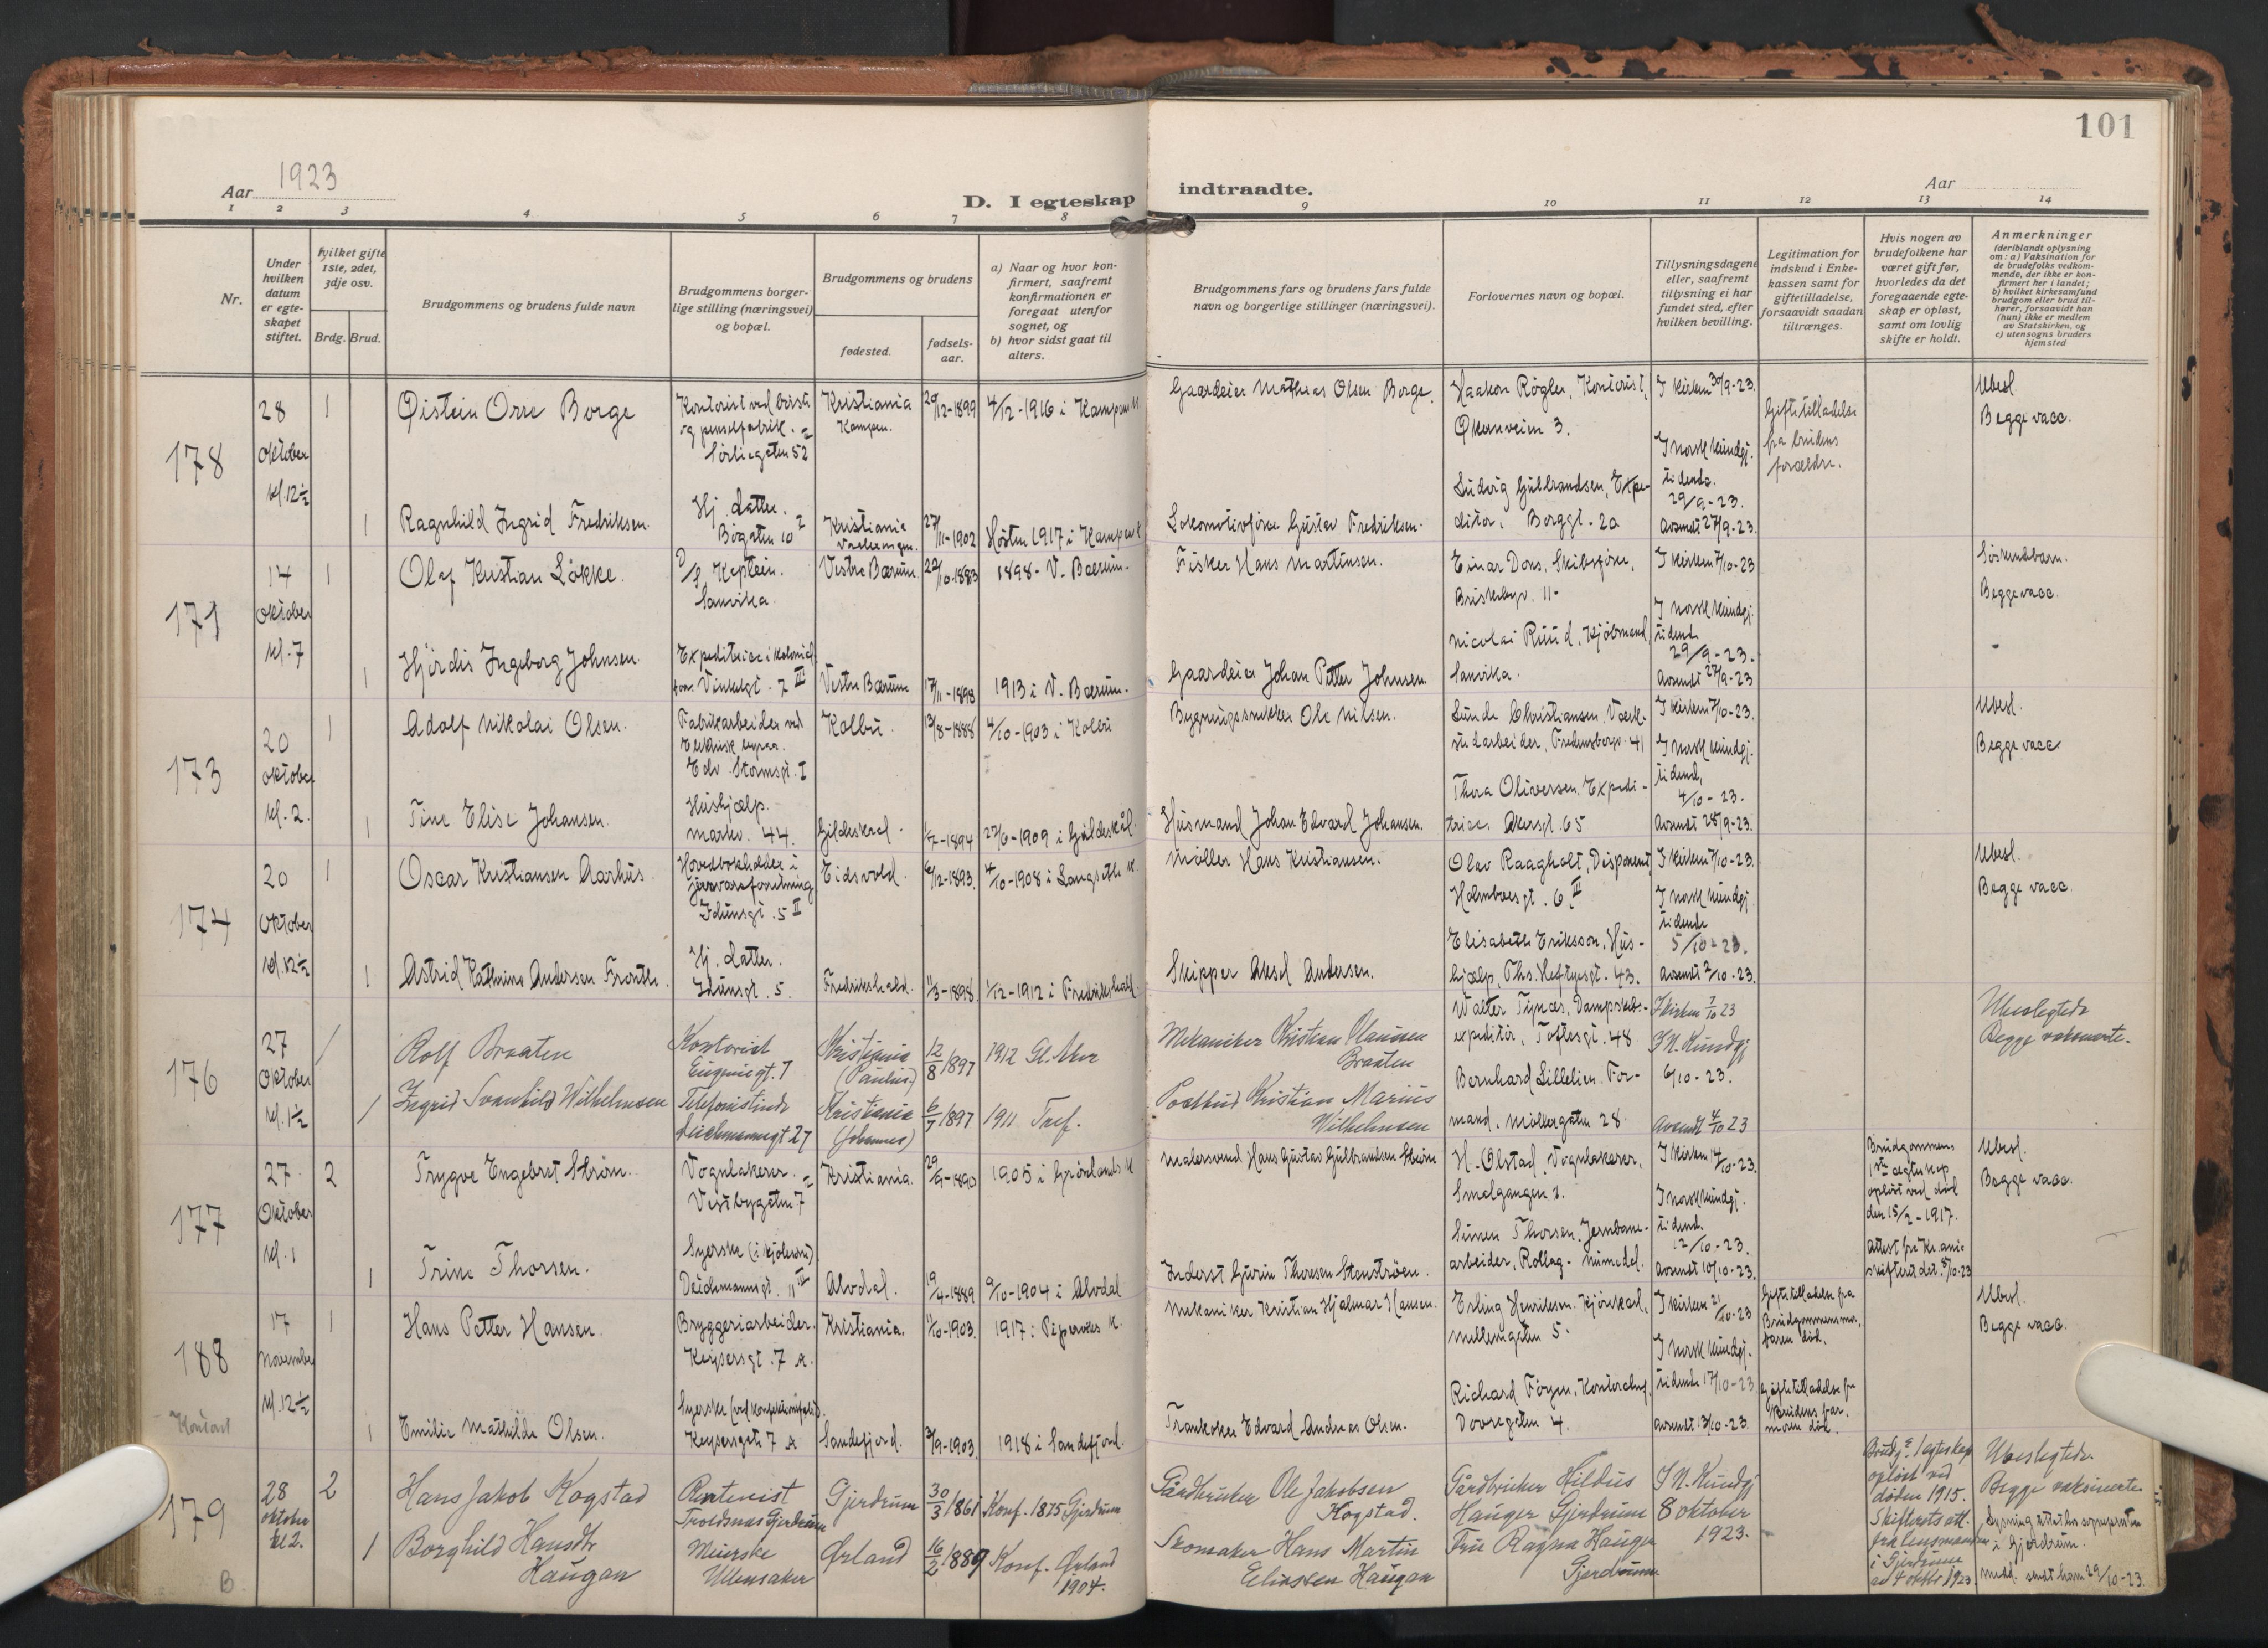 101
Aar 1923
D. I egteskap indtraadte.
Aar
1 2 3 4 5 6 7 8 9 10 11 12 13 14
Nr.
Under hvilken datum er egteskapet stiftet.
Hvilket gifte 1ste, 2det, 3dje osv.
Brdg. Brud.
Brudgommens og brudens fulde navn
Brudgommens borgerlige stilling (næringsvei) og bopæl.
Brudgommens og brudens
fødested.
fødselsaar.
a) Naar og hvor konfirmert, saafremt konfirmationen er foregaat utenfor sognet, og
b) hvor sidst gaat til alters.
Brudgommens fars og brudens fars fulde navn og borgerlige stillinger (næringsvei).
Forlovernes navn og bopæl.
Tillysningsdagene eller, saafremt tillysning ei har fundet sted, efter hvilken bevilling.
Legitimation for indskud i Enkekassen samt for giftetilladelse, forsaavidt saadan tiltrænges.
Hvis nogen av brudefolkene har været gift før, hvorledes da det foregaaende egteskap er opløst, samt om lovlig skifte er holdt.
Anmerkninger
(deriblandt oplysning om: a) Vaksination for de brudefolks vedkommende, der ikke er konfirmert her i landet;
b) hvilket kirkesamfund brudgom eller brud tilhører, forsaavidt han (hun) ikke er medlem av Statskirken, og
c) utensogns bruders hjemsted
178
28 Oktober kl. 12½
1 Øistein Orre Borge
Kontorist ved børste og penselfabrik. Sørligaten 52
Kristiania Kampen.
29/12-1899
4/12-1916 i Kampen K
Gaardeier Mathias Olsen Borge.
Haakon Røgler, Kontorist, Økernveien 3.
Ludvig Gulbrandsen, Expeditør, Borggt. 20
I kirken 30/9-23.
I norsk kundgj. tidende. 29/9-23.
Avsendt 27/9-23.
Giftetilladelse fra brudens forældre.
Ubesl.
Begge vacc.
1 Ragnhild Ingrid Fredriksen.
Hj. datter. Bøgaten 10
Kristiania
27/11-1902
Høsten 1917 i Kampen K
Lokomotivfører Gustav Fredriksen.
171
14 Oktober kl. 7
1 Olaf Kristian Løkke.
Kaptein. Sanvika.
Vestre Bærum.
22/10-1883
1898- V. Bærum.
Fisker Hans Martinsen.
Einar Dons, Skibsfører, Briskebyv. 11-
Nicolai Ruud, Kjøbmand, Sanvika.
I kirken 7/10-23
I norsk kundgj. tidend. 29/9-23.
Avsendt 27/9-23
Søskendebarn.
Begge vacc.
1 Hjørdis Ingeborg Johnsen.
Expeditrice i kolonialfor. Vinkelgt. 7 III
Vestre Bærum
17/11-1898
1913 i V. Bærum.
Gaardeier Johan Petter Johnsen
173
20 oktober kl. 2.
1 Adolf Nikolai Olsen.
Fabrikarbeider ved Elektrisk byraa. Edv. Stormsgt. I
Kolbu.
13/8-1888
4/10-1903 i Kolbu
Bygningssnekker Ole Nilsen.
Sunde Christiansen. Verkstedarbeider, Fredensborgv. 41
Thora Oliversen. Expeditrice. Akersgt. 65
I kirken 7/10-23.
I norsk kundgj. tidend. 4/10-23.
Avsendt 28/9-23.
Ubesl.
Begge vacc.
1 Tine Elise Johansen.
Hushjælp. Markv. 44.
Gildeskaal.
1/2-1894
27/6-1909 i Gildeskål.
Husmand Johan Edvard Johansen.
174
20 Oktober kl. 12½
1 Oscar Kristiansen Aarhus.
Hovedbokholder i jernvareforretning Idunsgt. 5 II
Eidsvold.
6/12-1893.
4/10-1908 i Langseth K
Møller Hans Kristiansen.
Olav Raagholt, Disponent, Holmboesgt. 6 III
Elisabeth Eriksson, Hushjælp, Ths. Heftyesgt. 43.
I kirken 7/10-23.
I norsk kundgj. tidende 5/10-23.
Avsendt 2/10-23.
Ubesl.
Begge vacc.
1 Astrid Kathrine Andersen Fronth.
Hj. datter. Idunsgt. 5.
Fredrikshald.
11/3-1898.
1/12-1912 i Fredrikshald
Skipper Aksel Andersen.
176
27 Oktober kl. 1½
1 Rolf Braaten
Kontorist Eugeniegt. 7
Kristiania (Paulus)
12/8 1897
1912 Gl. Aker
Mekaniker Kristian Olaussen Braaten
Walter Tynæs, Dampskibsexpeditør, Toftesgt. 48
Bernhard Lillelien. Formand. Møllergaten 28.
I kirken 7/10 23
I N. Kundgj 6/10-23.
Avsendt 4/10 23
Ubeslegtede
Begge vaksinerte.
1 Ingrid Svanhild Wilhelmsen
Telefonistinde Deichmannsgt 27
Kristiania (Johannes)
6/7 1897
1911 Tref.
Postbud Kristian Marius Wilhelmsen
177
27 Oktober kl. 1
2 Trygve Engebret Strøm.
Vognlakerer. Vestbygaten 7
Kristiania.
29/9-1890
1905 i Grønlands K
Malersvend Hans Gustav Gulbrandsen Strøm
H. Olstad, Vognlakerer, Smalgangen 2.
Simen Thorsen. Jernbanearbeider, Rollag-Numedal.
I kirken 14/10-23.
I norsk kundgj. tidend. 12/10-23.
Avsendt 10/10-23.
Brudgommens 1ste egteskap opløst ved død den 15/2-1917.
Attest fra Kr.ania skifterett dat. 8/10-23
Ubesl.
Begge vacc.
1 Trine Thorsen.
Syerske (i kjolesøm) Deichmannsgt. 11 III
Alvdal.
19/4-1889
9/10-1904 i Alvdal
Inderst Guvin Thoresen Stenstrøen.
188
17 November kl. 12½
Kontoret
1 Hans Petter Hansen.
Bryggeriarbeider. Keysersgt. 7 A.
Kristiania.
11/10-1903.
1917 i Piperviks K.
Mekaniker Kristian Hjalmar Hansen.
Erling Henriksen. Kjørekarl, Mellemgaten 5.
Richard Føyen, Kontorchef, Dovregaten 4.
I kirken 21/10-23
I norsk kundgj. tidende 17/10-23
Avsendt 13/10-23.
Giftetilladelse fra Brudgommens mor, faren død.
Giftetilladelse fra Brudens far, moren død.
Ubesl.
Begge vacc.
1 Emilie Mathilde Olsen.
Syerske (ved konfektionsfabr.) Keysersgate 7 A
Sandefjord.
3/9-1903.
1918 i Sandefjord.
Trankoker Edvard Andreas Olsen.
179
28 oktober kl 2.
2 Hans Jakob Kogstad
Rentenist Gjerdrum
Gjerdrum
30/3 1861
Konf. 1875 Gjerdrum
Gårdbruker Ole Jakobsen Kogstad.
Gårdbruker Hildus Hauger Gjerdrum
Fru Ragna Hauger Gjerdrum
I N. Kundgj 8 oktober 1923.
Brudg.s 1 egteskap opløst ved døden 1915. Skifterets att. fra lensmannen i Gjerdrum av 4 oktbr 1923.
Ubeslegtede.
Begge vaksinerte.
Lysning etter hos sognepresten i Gjerdrum.
Medd. sendt ham 29/10-23.
B
1 Borghild Hansdtr Haugan
Meierske Ullensaker
Ørland
16/2 1889
Konf. Ørland 1904.
Skomaker Hans Martin Eliassen Haugan